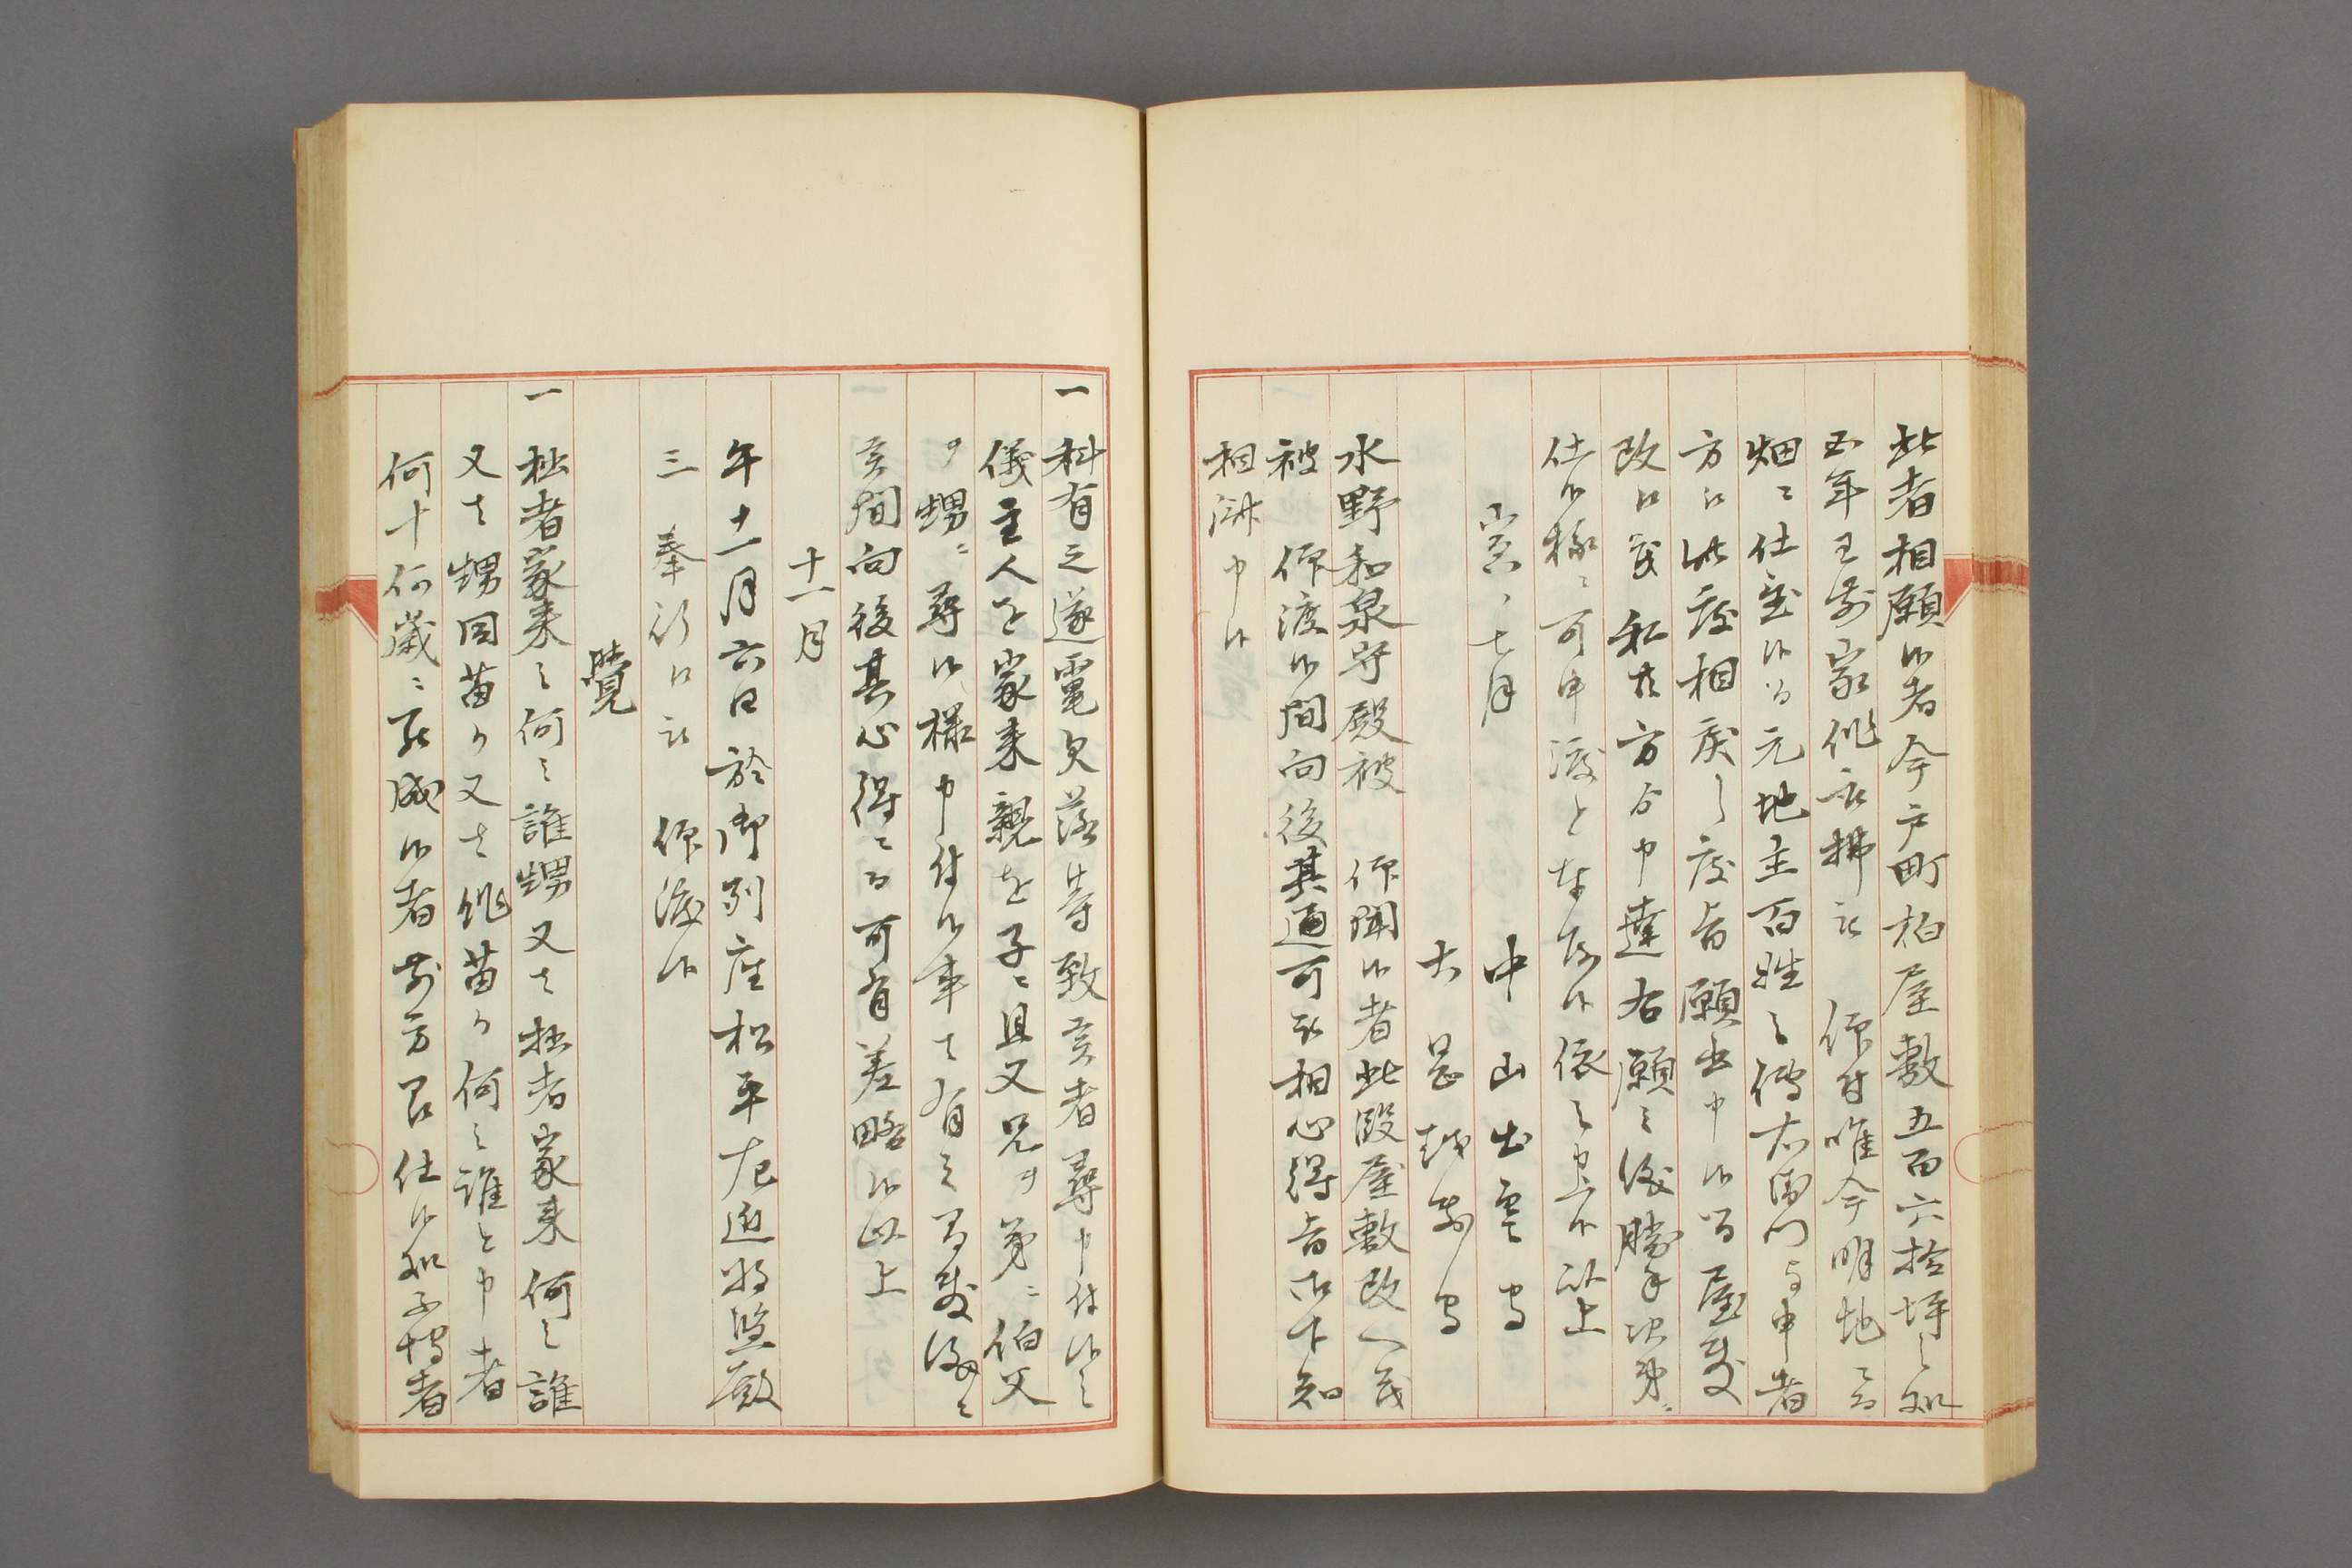 此者相願候者今戸町柏屋敷五百六拾坪之処
五年已前家作取払被　仰付唯今明地ニ而
畑ニ仕置候得元地主百姓之伝右衛門与申者
方江此度相戻し度旨願出申候得屋敷
改江茂私共方ゟ申達右願之儀勝手次第ニ
仕候様ニ可申渡と奉存候依之申上候以上
寅ノ七月　中山出雲守
大岡越前守
水野和泉守殿被　仰聞候者此段屋敷改へ茂
被　仰渡候間向後其通可被相心得旨御下知
相済申候
一 科有之逐電欠落等致候者尋申付候之
儀主人を家来親を子ニ且又兄ヲ弟ニ伯父
ヲ甥ニ尋候様申付候事者有之間敷儀ニ
候間向後其心得ニ而可有差略候以上
十一月
午十一月六日於御列座松平左近将監殿
三 奉行江被　仰渡候
覚
一 拙者家来之何之誰甥又者拙者家来何之誰
又者甥同苗か又者従苗か何之誰と申者
何十何歳ニ罷成候者前方召仕候処不埒者